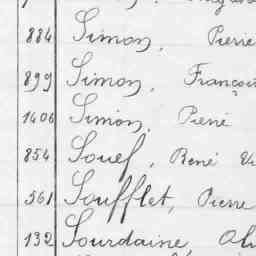 884 Simon, Pierre
899 Simon, Françoi
1406 Simon, Pierre
854 Souef, René
561 Soufflet, Pierre
132 Sourdaine,